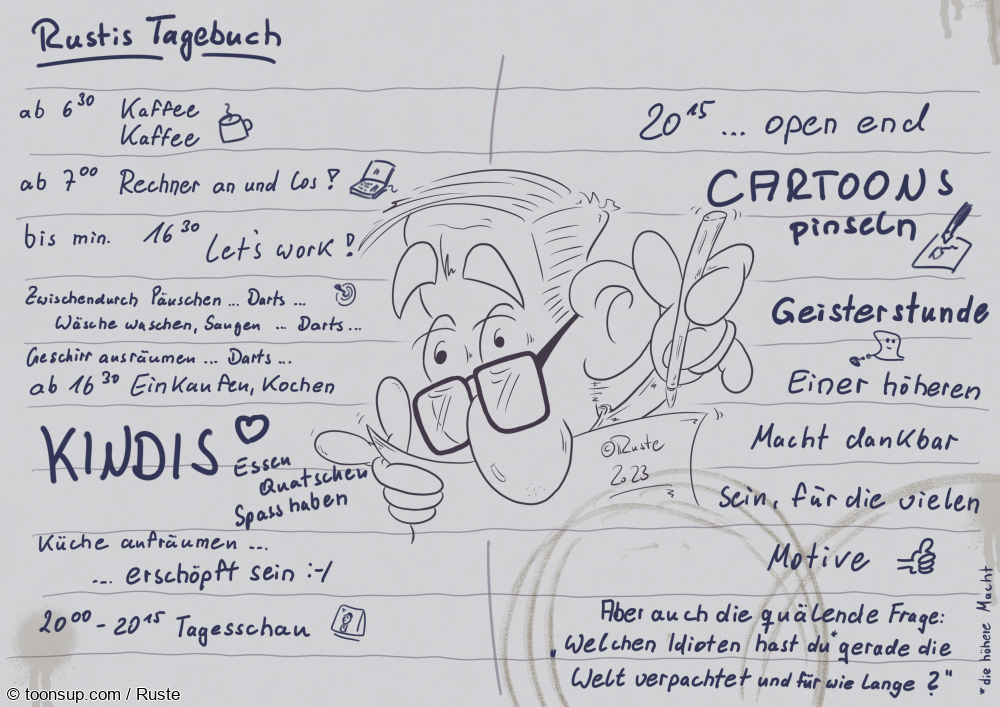 Rustis Tagebuch
ab 6³⁰ Kaffee
Kaffee
ab 7⁰⁰ Rechner an und los!
bis min. 16³⁰ Let's work!
Zwischendurch Päuschen ... Darts ...
Wäsche waschen, Saugen ... Darts ...
Geschirr ausräumen ... Darts ...
ab 16³⁰ Einkaufen, Kochen
KINDIS
Essen
Quatschen
Spass haben
Küche aufräumen ...
... erschöpft sein :-/
20⁰⁰ - 20¹⁵ Tagesschau
20¹⁵ ... open end
CARTOONS
pinseln
Geisterstunde
Einer höheren
Macht dankbar
sein, für die vielen
Motive
Aber auch die quälende Frage:
„Welchen Idioten hast du* gerade die
Welt verpachtet und für wie lange?"
*die höhere Macht
©Ruste
2023
© toonsup.com / Ruste